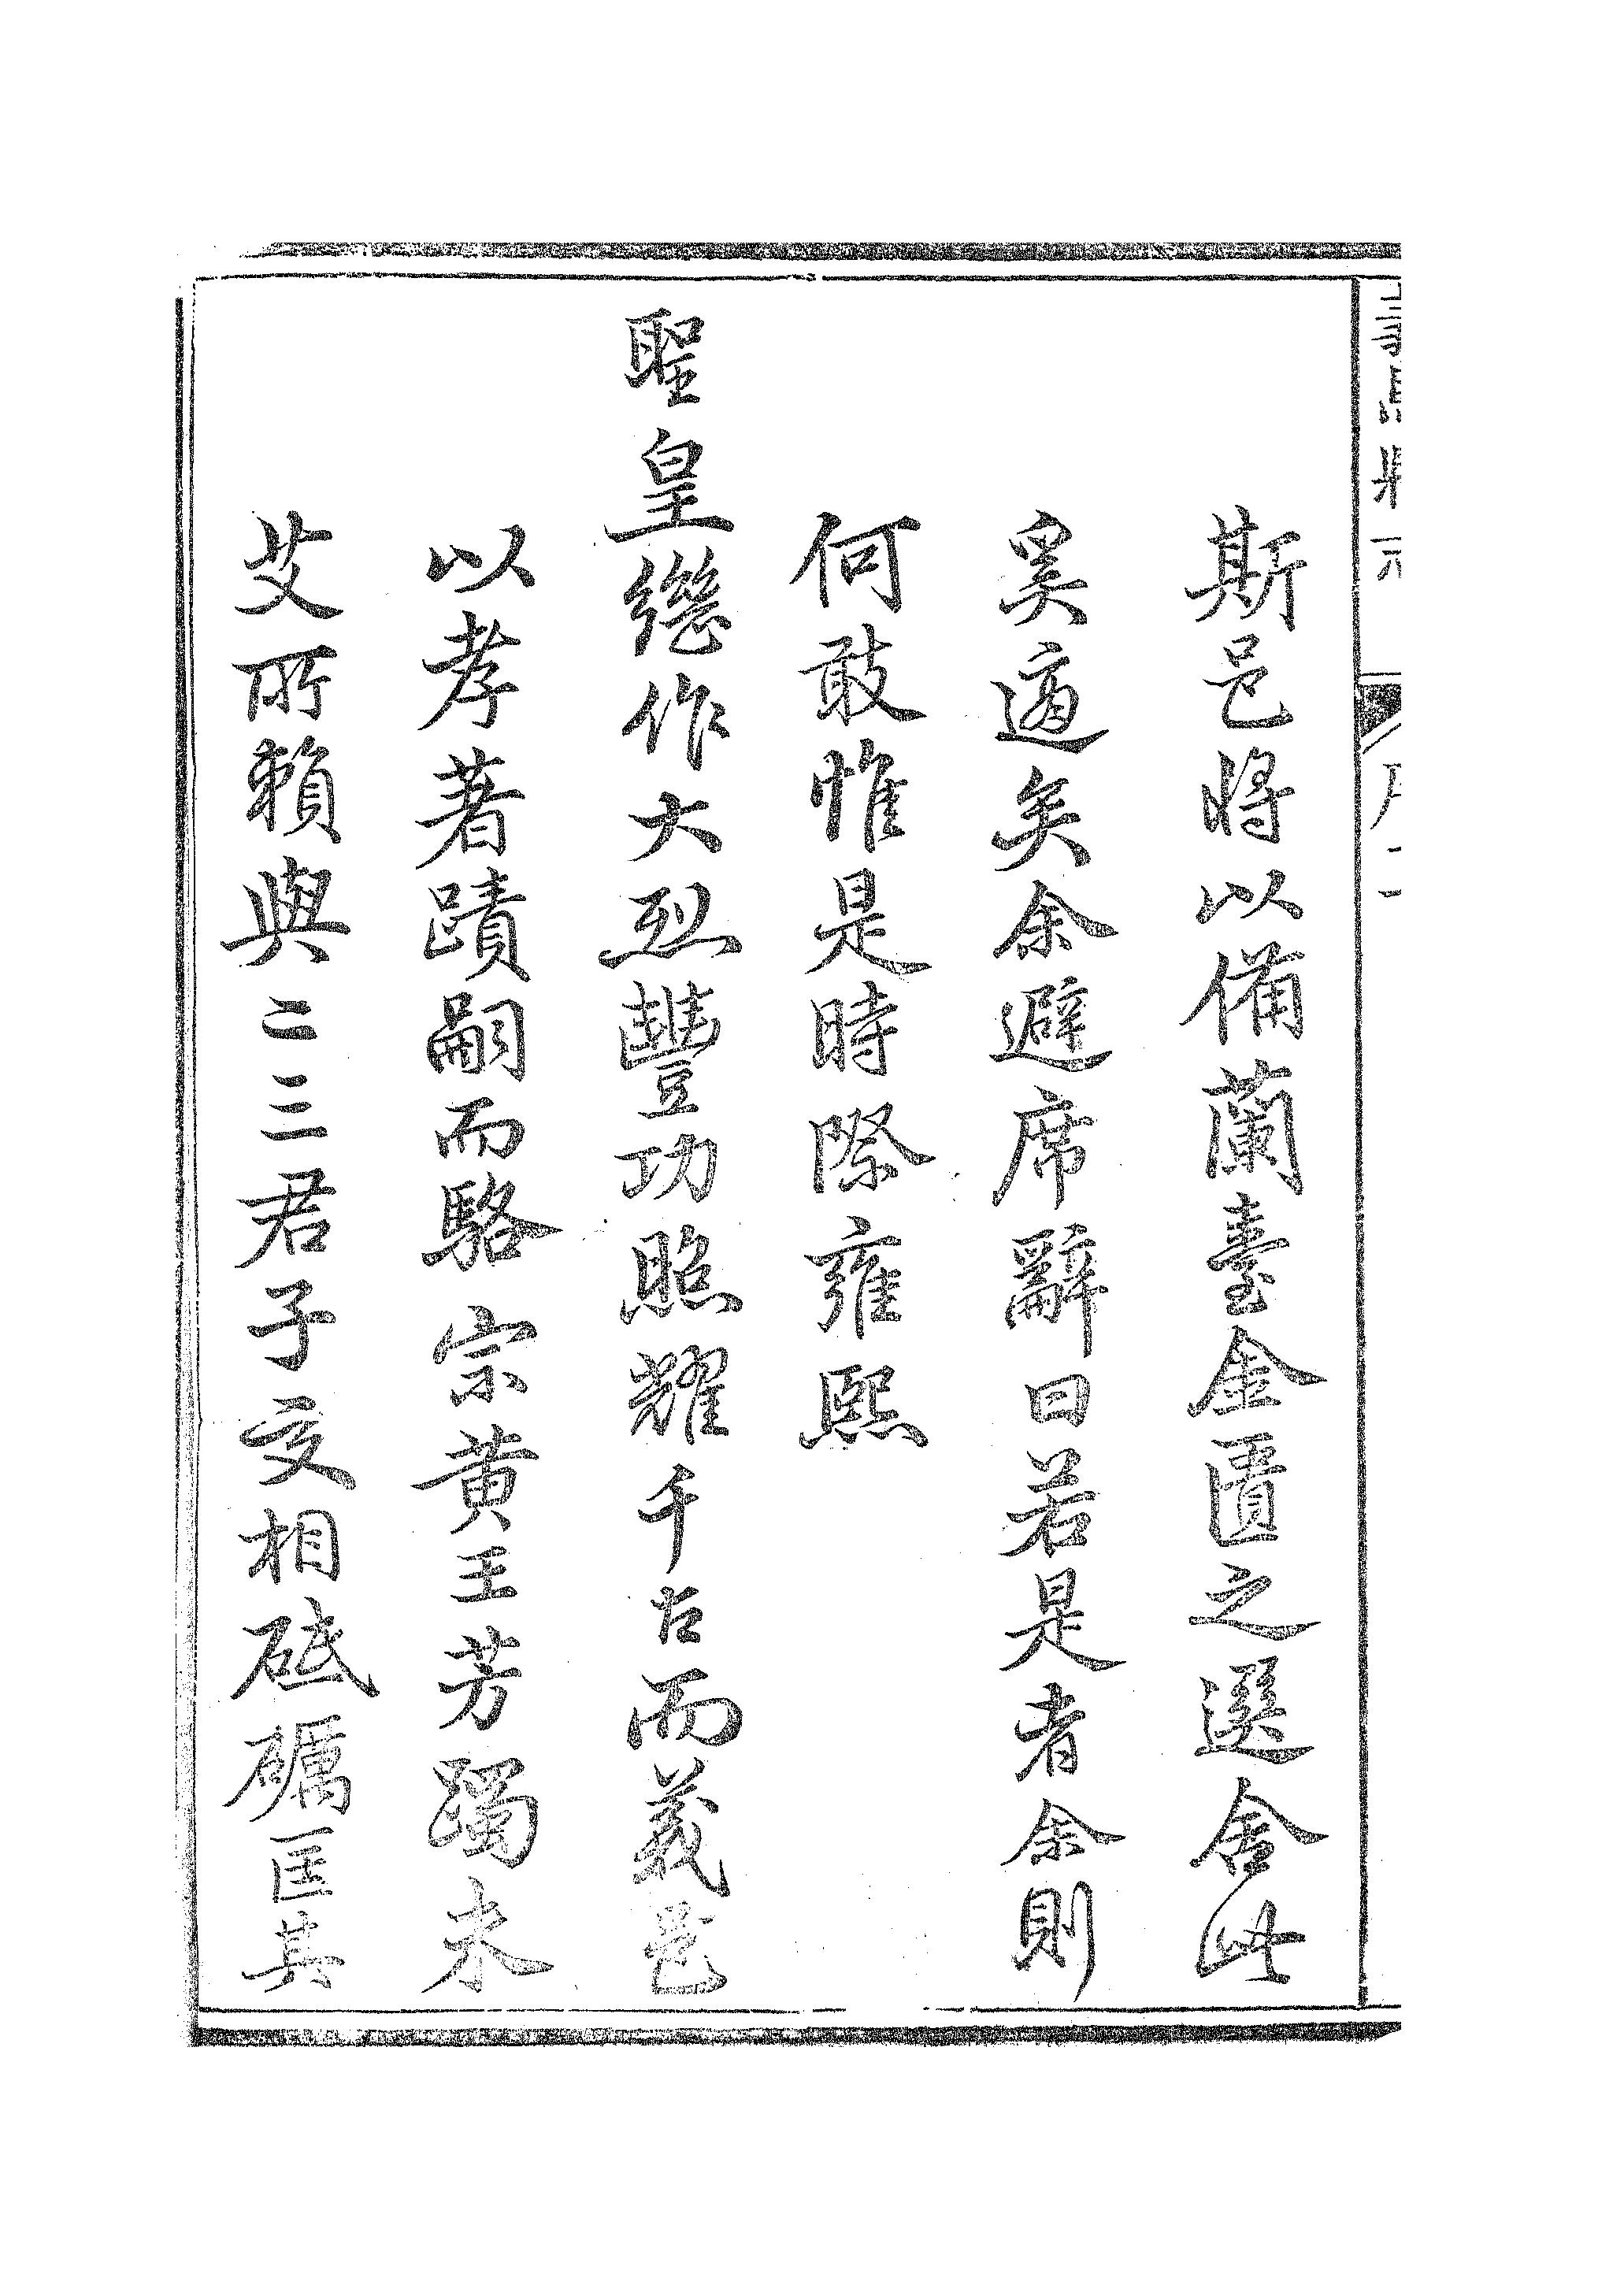 斯邑將以備蘭臺金匱之選舍此
奚適矣余避席辭曰若是者余則
何敢惟是時際雍熙
聖皇繼作大烈豐功照耀千古而義邑
以孝著蹟嗣而駱宗黃王芳躅未
艾所賴與二三君子交相砥礪匡其